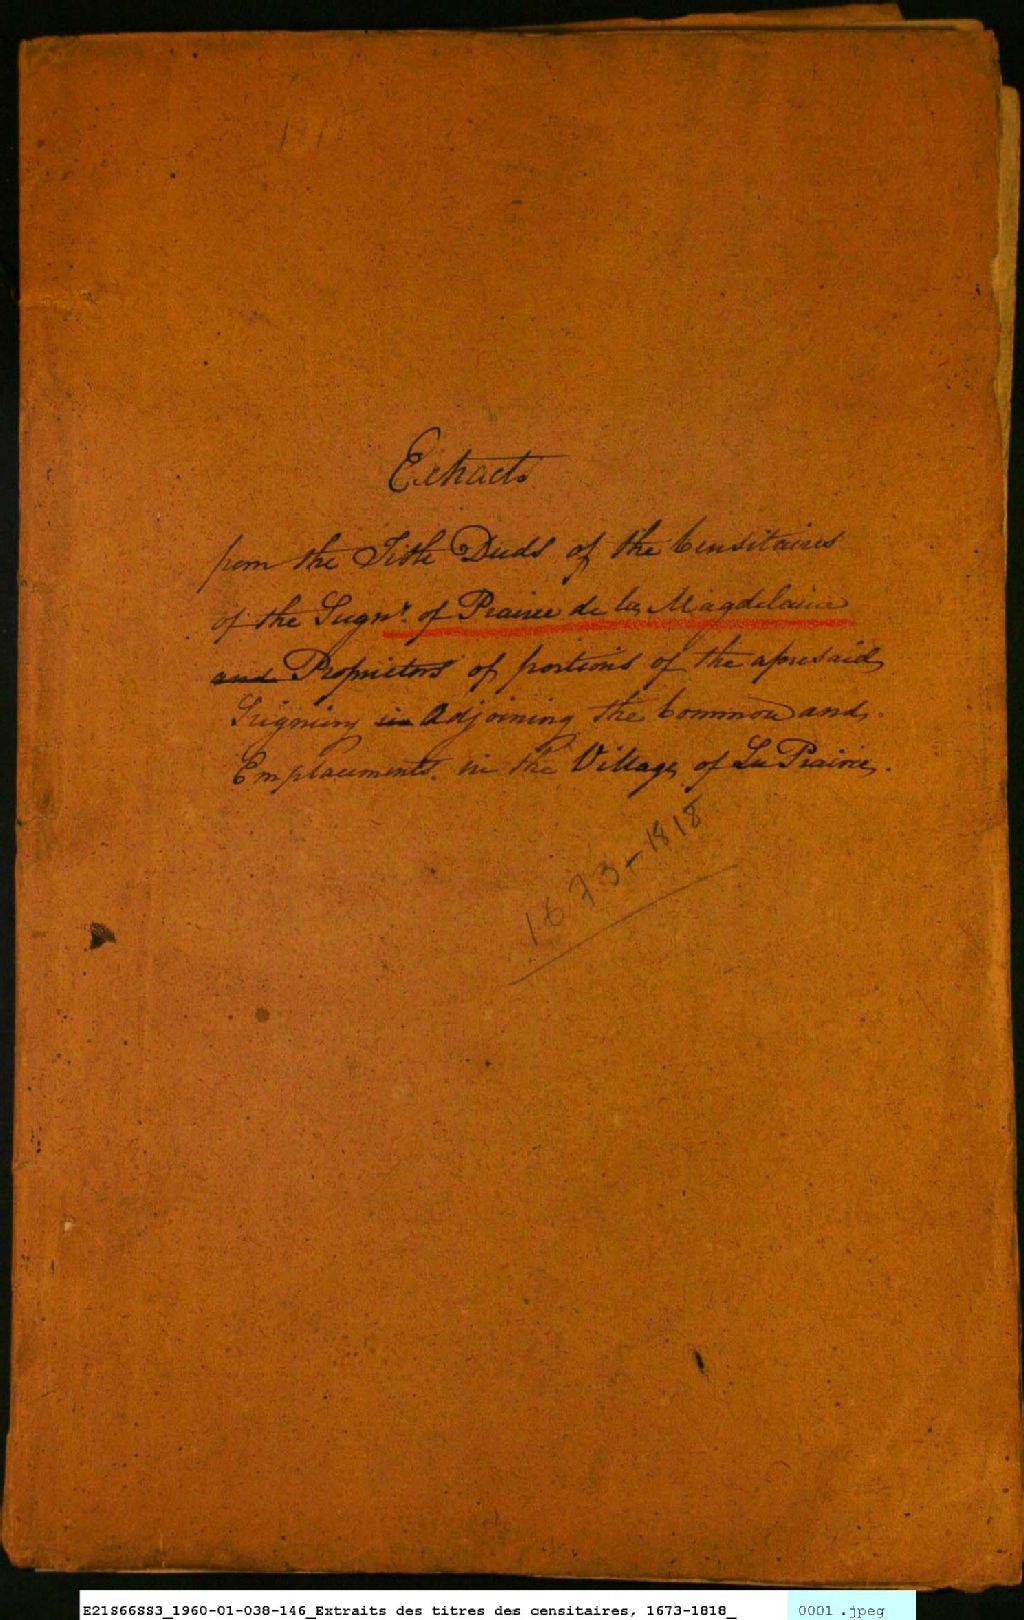 Extracts
from the Title Deeds of the Censitaires
of the Seignr. of Prairie de la Magdelaine
and Proprietors of portions of the aforesaid
Seigniory in Adjoining the Common and
Emplacements in the Village of La Prairie.
1673-1818
E21S66SS3_1960-01-038-146_Extraits des titres des censitaires, 1673-1818_ 0001 .jpeg